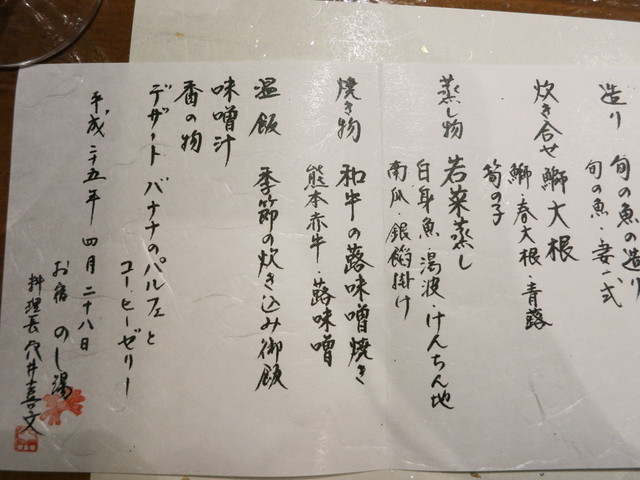 造り 旬の魚の造り
旬の魚・妻一式
炊き合せ 鰤大根
鰤・春大根・青蕗
筍の子
蒸し物 若菜蒸し
白身魚・湯波 けんちん地
南瓜・銀餡掛け
焼き物 和牛の蕗味噌焼き
熊本赤牛・蕗味噌
温飯 季節の炊き込み御飯
味噌汁
香の物
デザート バナナのパルフェと
コーヒーゼリー
平成二十五年 四月二十八日
お宿 のし湯
料理長 穴井喜文